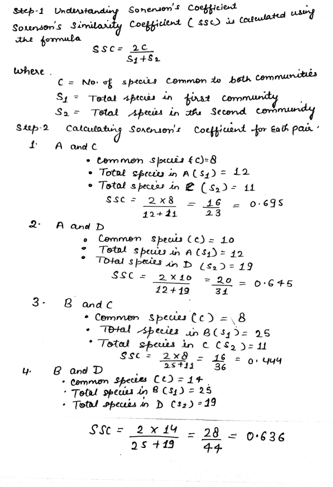 Step-1 Understanding Sorenson's Coefficient
Sorenson's Similarity Coefficient (SSC) is calculated using
the formula
SSC = 2C / S1+S2
Where
C = No. of species common to both communities
S1 = Total species in first community
S2 = Total species in the second community
Step-2 Calculating Sorenson's Coefficient for Each pair.
1. A and C
• Common species (c)=8
• Total species in A(S1) = 12
• Total species in C (S2) = 11
SSC = 2×8 / 12+11 = 16/23 = 0.695
2. A and D
• Common species (c) = 10
• Total species in A(S1) = 12
• Total species in D (S2) = 19
SSC = 2×10 / 12+19 = 20/31 = 0.645
3. B and C
• Common species (c) = 8
• Total species in B(S1) = 25
• Total species in C (S2) = 11
SSC = 2×8 / 25+11 = 16/36 = 0.444
4. B and D
• Common species (c) = 14
• Total species in B (S1) = 25
• Total species in D (S2) = 19
SSC = 2×14 / 25+19 = 28/44 = 0.636